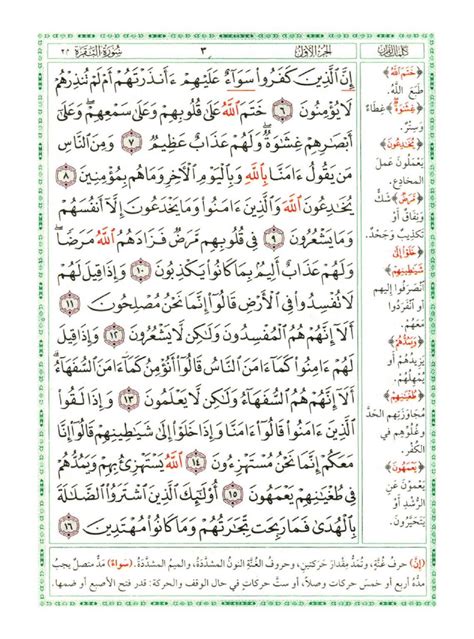 كلمات القرآن
الجزء الأول
٣
سورة البقرة
إِنَّ ٱلَّذِينَ كَفَرُوا۟ سَوَآءٌ عَلَيْهِمْ ءَأَنذَرْتَهُمْ أَمْ لَمْ تُنذِرْهُمْ
لَا يُؤْمِنُونَ ٦ خَتَمَ ٱللَّهُ عَلَىٰ قُلُوبِهِمْ وَعَلَىٰ سَمْعِهِمْ ۖ وَعَلَىٰٓ
أَبْصَـٰرِهِمْ غِشَـٰوَةٌ ۖ وَلَهُمْ عَذَابٌ عَظِيمٌ ٧ وَمِنَ ٱلنَّاسِ
مَن يَقُولُ ءَامَنَّا بِٱللَّهِ وَبِٱلْيَوْمِ ٱلْـَٔاخِرِ وَمَا هُم بِمُؤْمِنِينَ ٨
يُخَـٰدِعُونَ ٱللَّهَ وَٱلَّذِينَ ءَامَنُوا۟ وَمَا يَخْدَعُونَ إِلَّآ أَنفُسَهُمْ
وَمَا يَشْعُرُونَ ٩ فِى قُلُوبِهِم مَّرَضٌ فَزَادَهُمُ ٱللَّهُ مَرَضًا ۖ
وَلَهُمْ عَذَابٌ أَلِيمٌۢ بِمَا كَانُوا۟ يَكْذِبُونَ ١٠ وَإِذَا قِيلَ لَهُمْ
لَا تُفْسِدُوا۟ فِى ٱلْأَرْضِ قَالُوٓا۟ إِنَّمَا نَحْنُ مُصْلِحُونَ ١١
أَلَآ إِنَّهُمْ هُمُ ٱلْمُفْسِدُونَ وَلَـٰكِن لَّا يَشْعُرُونَ ١٢ وَإِذَا قِيلَ
لَهُمْ ءَامِنُوا۟ كَمَآ ءَامَنَ ٱلنَّاسُ قَالُوٓا۟ أَنُؤْمِنُ كَمَآ ءَامَنَ ٱلسُّفَهَآءُ ۗ
أَلَآ إِنَّهُمْ هُمُ ٱلسُّفَهَآءُ وَلَـٰكِن لَّا يَعْلَمُونَ ١٣ وَإِذَا لَقُوا۟
ٱلَّذِينَ ءَامَنُوا۟ قَالُوٓا۟ ءَامَنَّا وَإِذَا خَلَوْا۟ إِلَىٰ شَيَـٰطِينِهِمْ قَالُوٓا۟ إِنَّا
مَعَكُمْ إِنَّمَا نَحْنُ مُسْتَهْزِءُونَ ١٤ ٱللَّهُ يَسْتَهْزِئُ بِهِمْ وَيَمُدُّهُمْ
فِى طُغْيَـٰنِهِمْ يَعْمَهُونَ ١٥ أُو۟لَـٰٓئِكَ ٱلَّذِينَ ٱشْتَرَوُا۟ ٱلضَّلَـٰلَةَ
بِٱلْهُدَىٰ فَمَا رَبِحَت تِّجَـٰرَتُهُمْ وَمَا كَانُوا۟ مُهْتَدِينَ ١٦
﴿خَتَمَ اللَّهُ﴾
طَبَعَ اللَّهُ.
﴿غِشَاوَةٌ﴾ غِطَاءٌ
وَسِتْرٌ.
﴿يُخَادِعُونَ﴾
يَعْمَلُونَ عَمَلَ
المخادع.
﴿مَرَضٌ﴾ شَكٌّ
وَنِفَاقٌ أَوْ
تَكْذِيبٌ وَجَحْدٌ.
﴿خَلَوْا إِلَى
شَيَاطِينِهِمْ﴾
انْصَرَفُوا إِلَيهِم
أَو انْفَرَدُوا
مَعَهُم.
﴿وَيَمُدُّهُمْ﴾
يَزِيدُهُمْ أَوْ
يُمْهِلُهُم.
﴿طُغْيَانِهِمْ﴾
مُجَاوَزَتِهِم الحَدَّ
وَغُلُوِّهِم في
الكُفْرِ.
﴿يَعْمَهُونَ﴾
يَعْمَوْنَ عَنِ
الرُّشْدِ أَوْ
يَتَحَيَّرُونَ.
(إِنَّ) حرفُ غُنَّةٍ، وتُمَدُّ مِقدارَ حَرَكتينِ، وحروفُ الغُنَّةِ النونُ المشدَّدةُ، والميمُ المشدَّدةُ. (سواءٌ) مَدٌّ متصلٌ يجبُ
مدُّه أربع أو خمسَ حركاتٍ وصلًا، أو ستَّ حركاتٍ في حال الوقف والحركة: قدر فتح الأصبع أو ضمها.